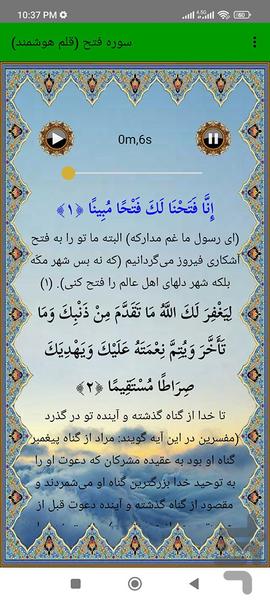 10:37 PM
سوره فتح (قلم هوشمند)
0m,6s
إِنَّا فَتَحْنَا لَكَ فَتْحًا مُبِينًا ﴿۱﴾
(ای رسول ما غم مدار که) البته ما تو را به فتح
آشکاری فیروز می‌گردانیم (که نه بس شهر مکّه
بلکه شهر دلهای اهل عالم را فتح کنی). (۱)
لِيَغْفِرَ لَكَ اللَّهُ مَا تَقَدَّمَ مِنْ ذَنْبِكَ وَمَا
تَأَخَّرَ وَيُتِمَّ نِعْمَتَهُ عَلَيْكَ وَيَهْدِيَكَ
صِرَاطًا مُسْتَقِيمًا ﴿۲﴾
تا خدا از گناه گذشته و آینده تو در گذرد
(مفسرین در این آیه گویند: مراد از گناه پیغمبر
گناه او بود به عقیده مشرکان که دعوت او را
به توحید خدا بزرگترین گناه او می‌شمردند و
مقصود از گناه گذشته و آینده دعوت قبل از